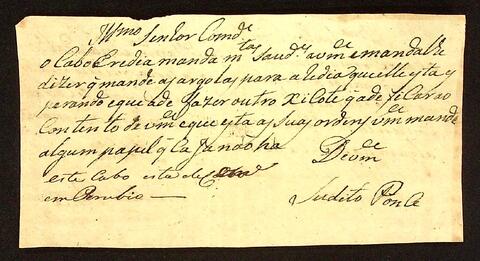 Illmo Senhor Comde
o Cabo Eredia manda mtas Saudes a vmce e manda lhe
dizer q mande as argolas para a Redia que elle esta es
perando e que ade fazer outro Xilote q ade ficar ao
Contento de vmce e que esta as suas ordens vmce mande
algum papel q Ca Ja não ha
De vmce
este Cabo está de
em Perubio
Subdito Ponce